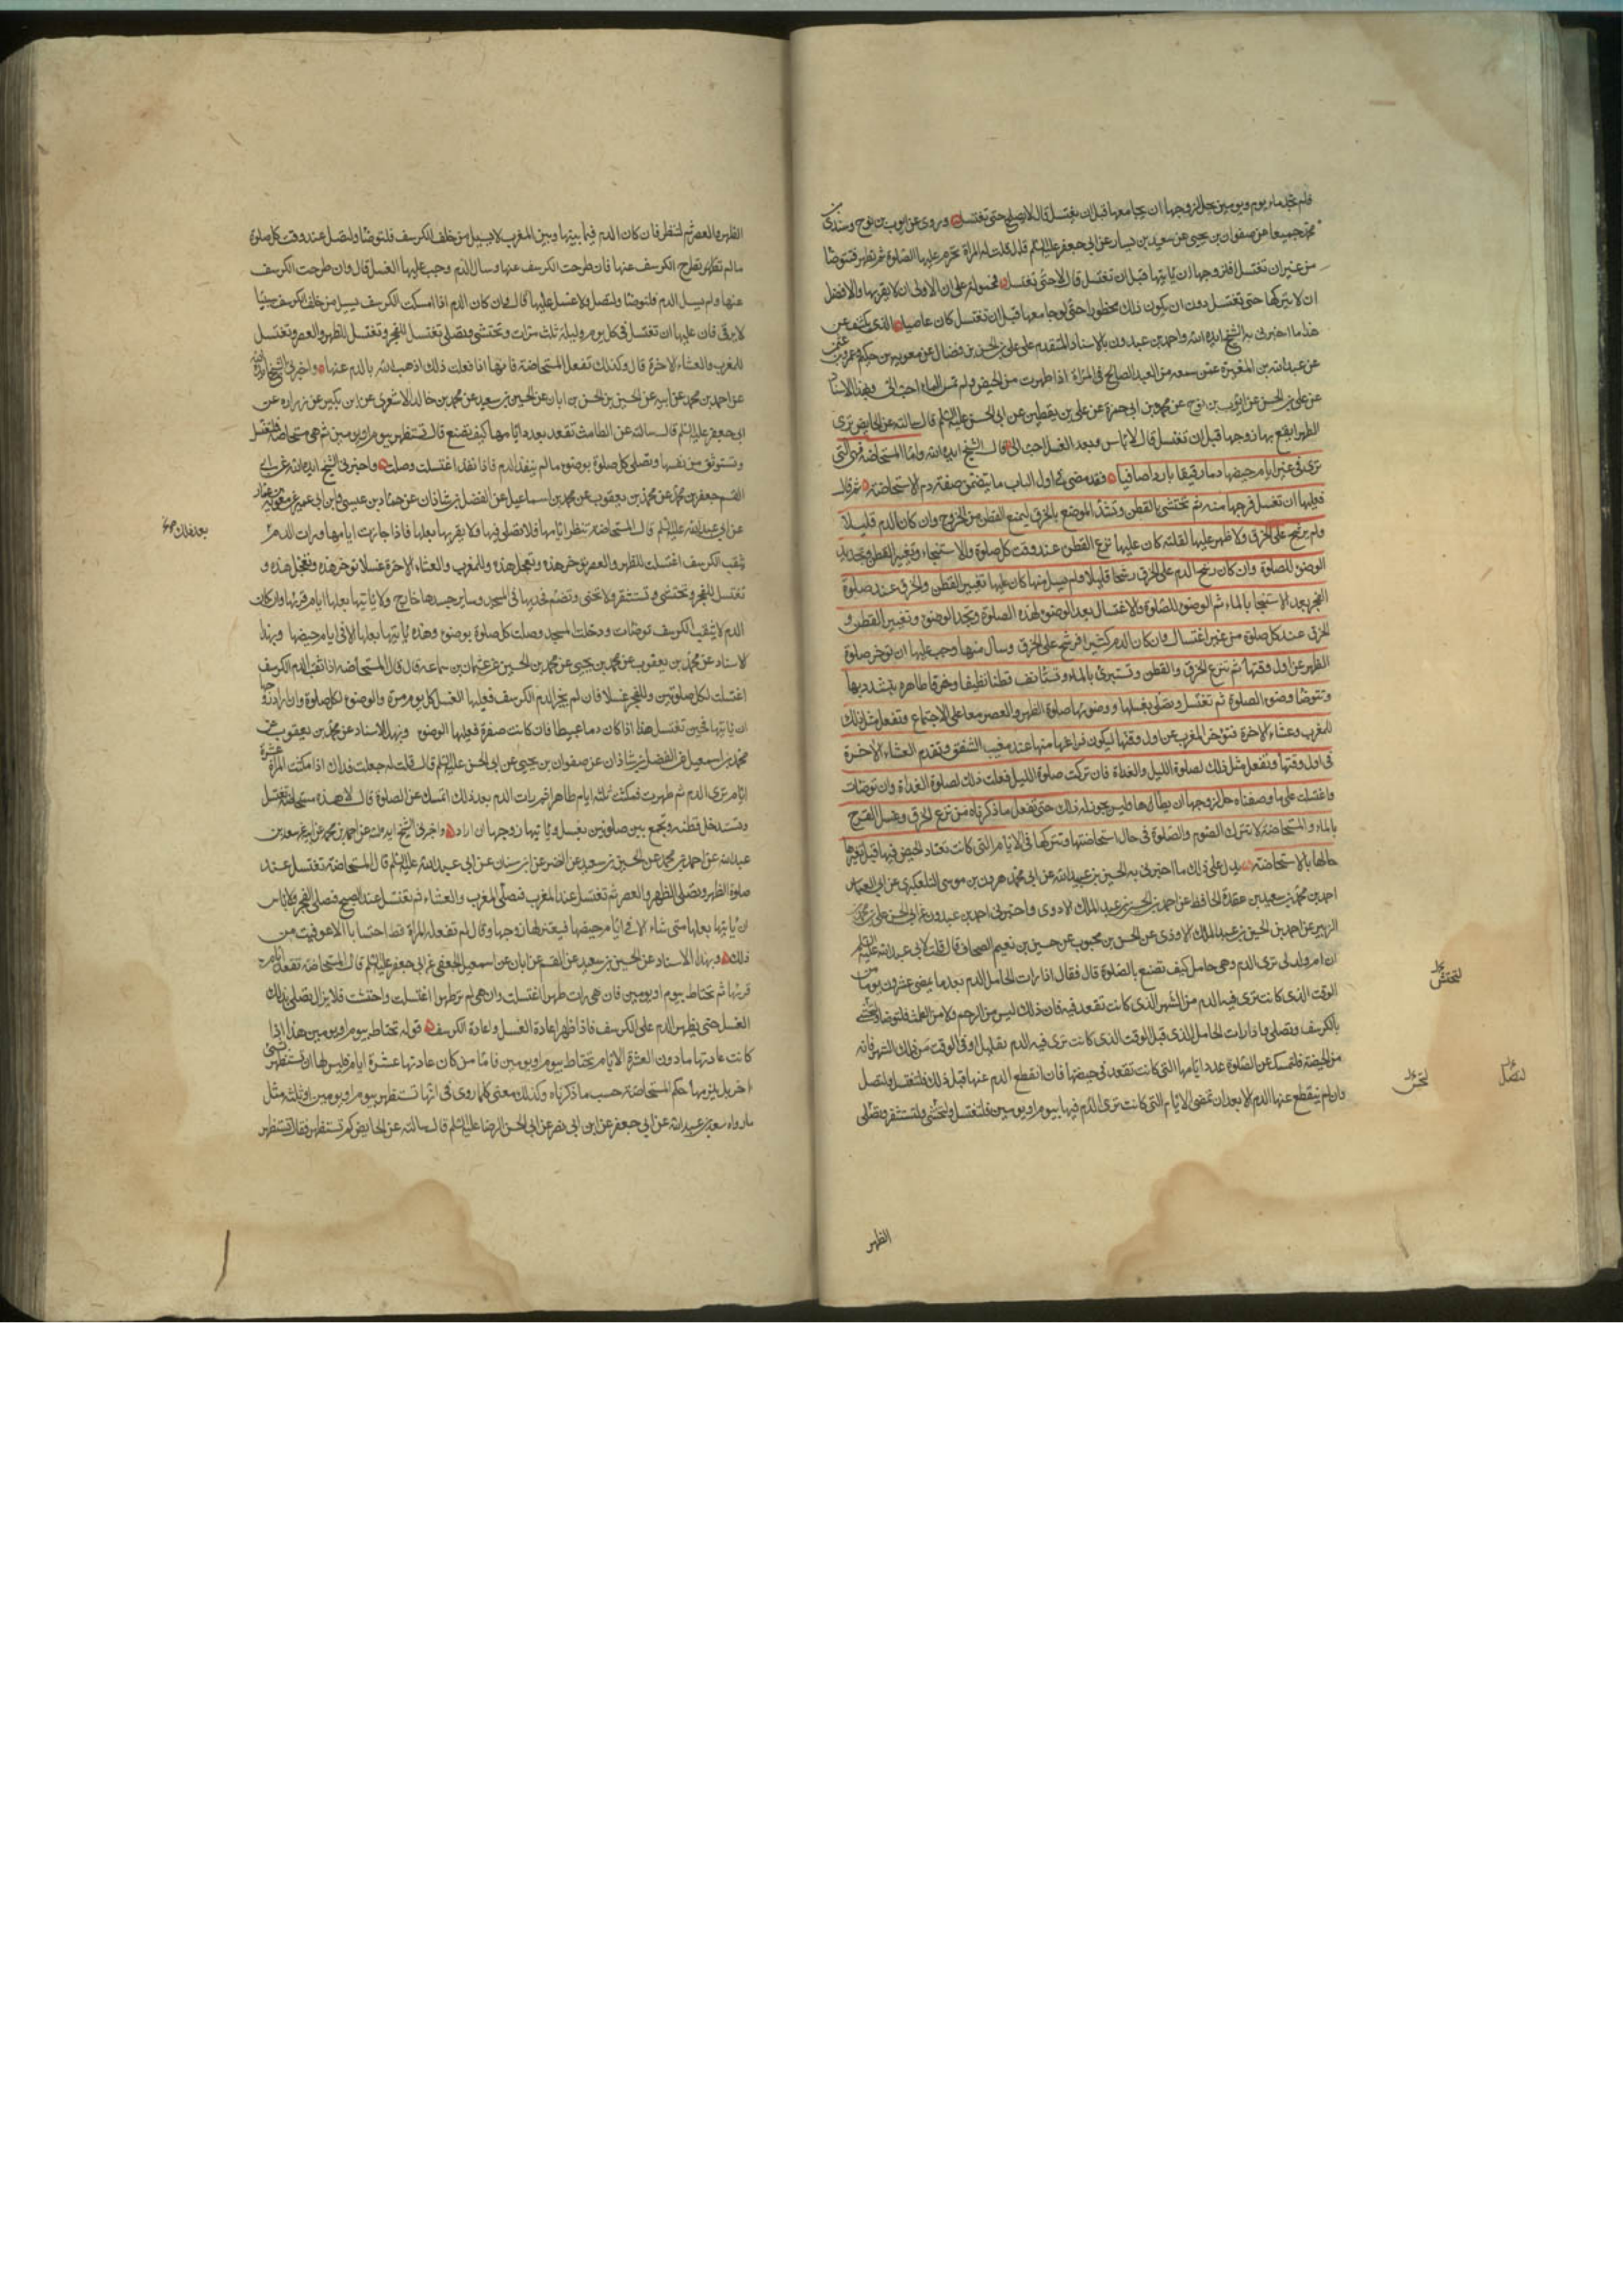 فلم تجد ماء يوم ويومين يحل لزوجها ان يجامعها قبل ان تغتسل قال لا يصلح حتى تغتسل وروى عن ايوب بن نوح وسندى بن
محمد جميعا عن صفوان بن يحيى عن سعيد بن يسار عن ابى عبد الله عليه السلم قال قلت له المرأة تحرم عليها الصلوة ثم تطهر فتوضأ
من غير ان تغتسل افلزوجها ان ياتيها قبل ان تغتسل قال لا حتى تغتسل فمحمولة على ان الاولى ان لا يقربها والافضل
ان لا يتركها حتى تغتسل دون ان يكون ذلك محظورا حتى لو جامعها قبل ان تغتسل كان عاصيا والذى يكشف عن
هذا ما اخبرنى به الشيخ ايده الله واحمد بن عبدون بالاسناد المتقدم على على بن الحسن بن فضال عن معوية بن حكيم وعمرو بن عثمن
عن عبد الله بن المغيرة عمن سمعه من العبد الصالح فى المرأة اذا طهرت من الحيض ولم تمس الماء احب الى وبهذا الاسناد
عن على بن الحسن عن ايوب بن نوح عن محمد بن ابى حمزة عن على بن يقطين عن ابى الحسن عليه السلم قال سالته عن الحايض ترى
الطهر ايقع بها زوجها قبل ان تغتسل قال لا باس وبعد الغسل احب الى قال الشيخ ايده الله واما المستحاضة فهى التى
ترى فى غير ايام حيضها دما رقيقا باردا صافيا فقد مضى فى اول الباب ما يتضمن صفة دم الاستحاضة ثم قال
فعليها ان تغسل فرجها منه ثم تحتشى بالقطن وتشد الموضع بالخرق ليمنع القطن من الخروج وان كان الدم قليلا
ولم يرشح على الخرق ولا ظهر عليها لقلته كان عليها نزع القطن عند وقت كل صلوة والاستنجاء وتغيير القطن وتجديد
الوضوء للصلوة وان كان رشح الدم على الخرق رشحا قليلا ولم يسل منها كان عليها تغيير القطن والخرق عند صلوة
الفجر بعد الاستنجا بالماء ثم الوضوء للصلوة والاغتسال بعد الوضوء لهذه الصلوة وتجدد الوضوء وتغيير القطن و
الخرق عند كل صلوة من غير اغتسال وان كان الدم كثيرا فرشح على الخرق وسال منها وجب عليها ان توخر صلوة
الظهر عن اول وقتها ثم تنزع الخرق والقطن وتستبرئ بالماء وتستانف قطنا نظيفا وخرقا طاهرة تتشدد بها
وتتوضأ وضوء الصلوة ثم تغتسل وتصلى بغسلها ووضوئها صلوة الظهر والعصر معا على الاجتماع وتفعل مثل ذلك
للمغرب وعشاء الاخرة فتوخر المغرب عن اول وقتها ليكون فراغها منها عند مغيب الشفق وتقدم العشاء الاخرة
فى اول وقتها وتفعل مثل ذلك لصلوة الليل والغداة فان تركت صلوة الليل فعلت ذلك لصلوة الغداة وان توضات
واغتسلت على ما وصفناه حل لزوجها ان يطأها وليس يجوز له ذلك حتى تفعل ما ذكرناه من نزع الخرق وغسل الفرج
بالماء والمستحاضة لا تترك الصوم والصلوة فى حال استحاضتها وتتركها فى الايام التى كانت تعتاد الحيض فيها قبل تغير
حالها بالاستحاضة يدل على ذلك ما اخبرنى به الحسين بن عبيد الله عن ابى محمد هرون بن موسى التلعكبرى عن ابى العباس
احمد بن محمد بن سعيد بن عقدة الحافظ عن احمد بن الحسين بن عبد الملك الاودى واخبرنى احمد بن عبدون عن ابى الحسن على بن محمد بن
الزبير عن احمد بن الحسين بن عبد الملك الاودى عن الحسن بن محبوب عن حسين بن نعيم الصحاف قال قلت لابى عبد الله عليه السلم
ان ام ولد لى ترى الدم وهى حامل كيف تصنع بالصلوة قال فقال اذا رات الحامل الدم بعد ما يمضى عشرون يوما من
الوقت الذى كانت ترى فيه الدم من الشهر الذى كانت تقعد فيه فان ذلك ليس من الرحم ولا من الطمث فلتوضا وتحتشى
بالكرسف وتصلى واذا رات الحامل الدم قبل الوقت الذى كانت ترى فيه الدم بقليل او فى الوقت من ذلك الشهر فانه
من الحيضة فلتمسك عن الصلوة عدد ايامها التى كانت تقعد فى حيضها فان انقطع الدم عنها قبل ذلك فلتغتسل ولتصل
وان لم ينقطع عنها الدم الا بعد ان تمضى الايام التى كانت ترى الدم فيها بيوم او يومين فلتغتسل ولتحتشى ولتستثفر وتصلى
الظهر
الظهر والعصر ثم لتنظر فان كان الدم فيما بينها وبين المغرب لا يسيل من خلف الكرسف فلتوضأ ولتصل عند وقت كل صلوة
ما لم تطرح الكرسف عنها فان طرحت الكرسف عنها وسال الدم وجب عليها الغسل قال وان طرحت الكرسف
عنها ولم يسل الدم فلتوضأ ولتصل ولا غسل عليها قال فان كان الدم اذا امسكت الكرسف يسيل من خلف الكرسف صبيبا
لا يرقى فان عليها ان تغتسل فى كل يوم وليلة ثلث مرات وتحتشى وتصلى تغتسل للفجر وتغتسل للظهر والعصر وتغتسل
للمغرب والعشاء الاخرة قال وكذلك تفعل المستحاضة فانها اذا فعلت ذلك اذهب الله بالدم عنها واخبرنى الشيخ ايده الله
عن احمد بن محمد عن ابيه عن الحسين بن الحسن بن ابان عن الحسين بن سعيد عن محمد بن خالد الاشعرى عن ابن بكير عن زرارة عن
ابى جعفر عليه السلم قال سالته عن الطامث تقعد بعدد ايامها كيف تصنع قال تستظهر بيوم او يومين ثم هى مستحاضة فلتغتسل
وتستوثق من نفسها وتصلى كل صلوة بوضوء ما لم ينفذ الدم فاذا نفذ اغتسلت وصلت واخبرنى الشيخ ايده الله عن ابى
القسم جعفر بن محمد عن محمد بن يعقوب عن محمد بن اسماعيل عن الفضل بن شاذان عن حماد بن عيسى وابن ابى عمير عن معوية بن عمار
عن ابى عبد الله عليه السلم قال المستحاضة تنظر ايامها فلا تصلى فيها ولا يقربها بعلها فاذا جازت ايامها ورات الدم
يثقب الكرسف اغتسلت للظهر والعصر توخر هذه وتعجل هذه وللمغرب والعشاء الاخرة غسلا توخر هذه وتعجل هذه و
تغتسل للفجر وتحتشى وتستثفر ولا تحنى وتضم فخذيها فى المسجد وساير جسدها خارج ولا ياتيها بعلها ايام قرئها وان كان
الدم لا يثقب الكرسف توضات ودخلت المسجد وصلت كل صلوة بوضوء وهذه ياتيها بعلها الا فى ايام حيضها وبهذا
الاسناد عن محمد بن يعقوب عن محمد بن يحيى عن محمد بن الحسين عن عثمان بن سماعة قال قال المستحاضة اذا ثقب الدم الكرسف
اغتسلت لكل صلوتين وللفجر غسلا فان لم يجز الدم الكرسف فعليها الغسل كل يوم مرة والوضوء لكل صلوة وان اراد زوجها
ان ياتيها فحين تغتسل هذا اذا كان دما عبيطا فان كانت صفرة فعليها الوضوء وبهذا الاسناد عن محمد بن يعقوب عن
محمد بن اسمعيل عن الفضل بن شاذان عن صفوان بن يحيى عن ابى الحسن عليه السلم قال قلت له جعلت فداك اذا مكثت المرأة عشرة
ايام ترى الدم ثم طهرت فمكثت ثلثة ايام طاهرا ثم رات الدم بعد ذلك اتمسك عن الصلوة قال لا هذه مستحاضة تغتسل
وتستدخل قطنة وتجمع بين صلوتين بغسل وياتيها زوجها ان اراد واخبرنى الشيخ ايده الله عن احمد بن محمد عن ابيه عن سعد بن
عبد الله عن احمد بن محمد عن الحسين بن سعيد عن النضر عن ابن سنان عن ابى عبد الله عليه السلم قال المستحاضة تغتسل عند
صلوة الظهر وتصلى الظهر والعصر ثم تغتسل عند المغرب فتصلى المغرب والعشاء ثم تغتسل عند الصبح فتصلى الفجر ولا باس
ان ياتيها بعلها متى شاء الا فى ايام حيضها فيعتزلها زوجها وقال لم تفعله امرأة قط احتسابا الا عوفيت من
ذلك وبهذا الاسناد عن الحسين بن سعيد عن القسم عن ابان عن اسمعيل الجعفى عن ابى جعفر عليه السلم قال المستحاضة تقعد ايام
قرئها ثم تحتاط بيوم او يومين فان هى رات طهرا اغتسلت وان هى لم تر طهرا اغتسلت واحتشت فلا يزال تصلى بذلك
الغسل حتى يظهر الدم على الكرسف فاذا ظهر اعادة الغسل واعادة الكرسف قوله تحتاط بيوم او يومين هذا اذا
كانت عادتها ما دون العشرة الايام تحتاط بيوم او يومين فاما من كان عادتها عشرة ايام فليس لها ان تستظهر بشئ
اخر بل يلزمها حكم المستحاضة حسب ما ذكرناه وكذلك معنى كلما روى فى انها تستظهر بيوم او يومين او ثلثة مثل
ما رواه سعد بن عبد الله عن ابى جعفر عن ابن ابى نصر عن ابى الحسن الرضا عليه السلم قال سالته عن الحايض كم تستظهر فقال تستظهر